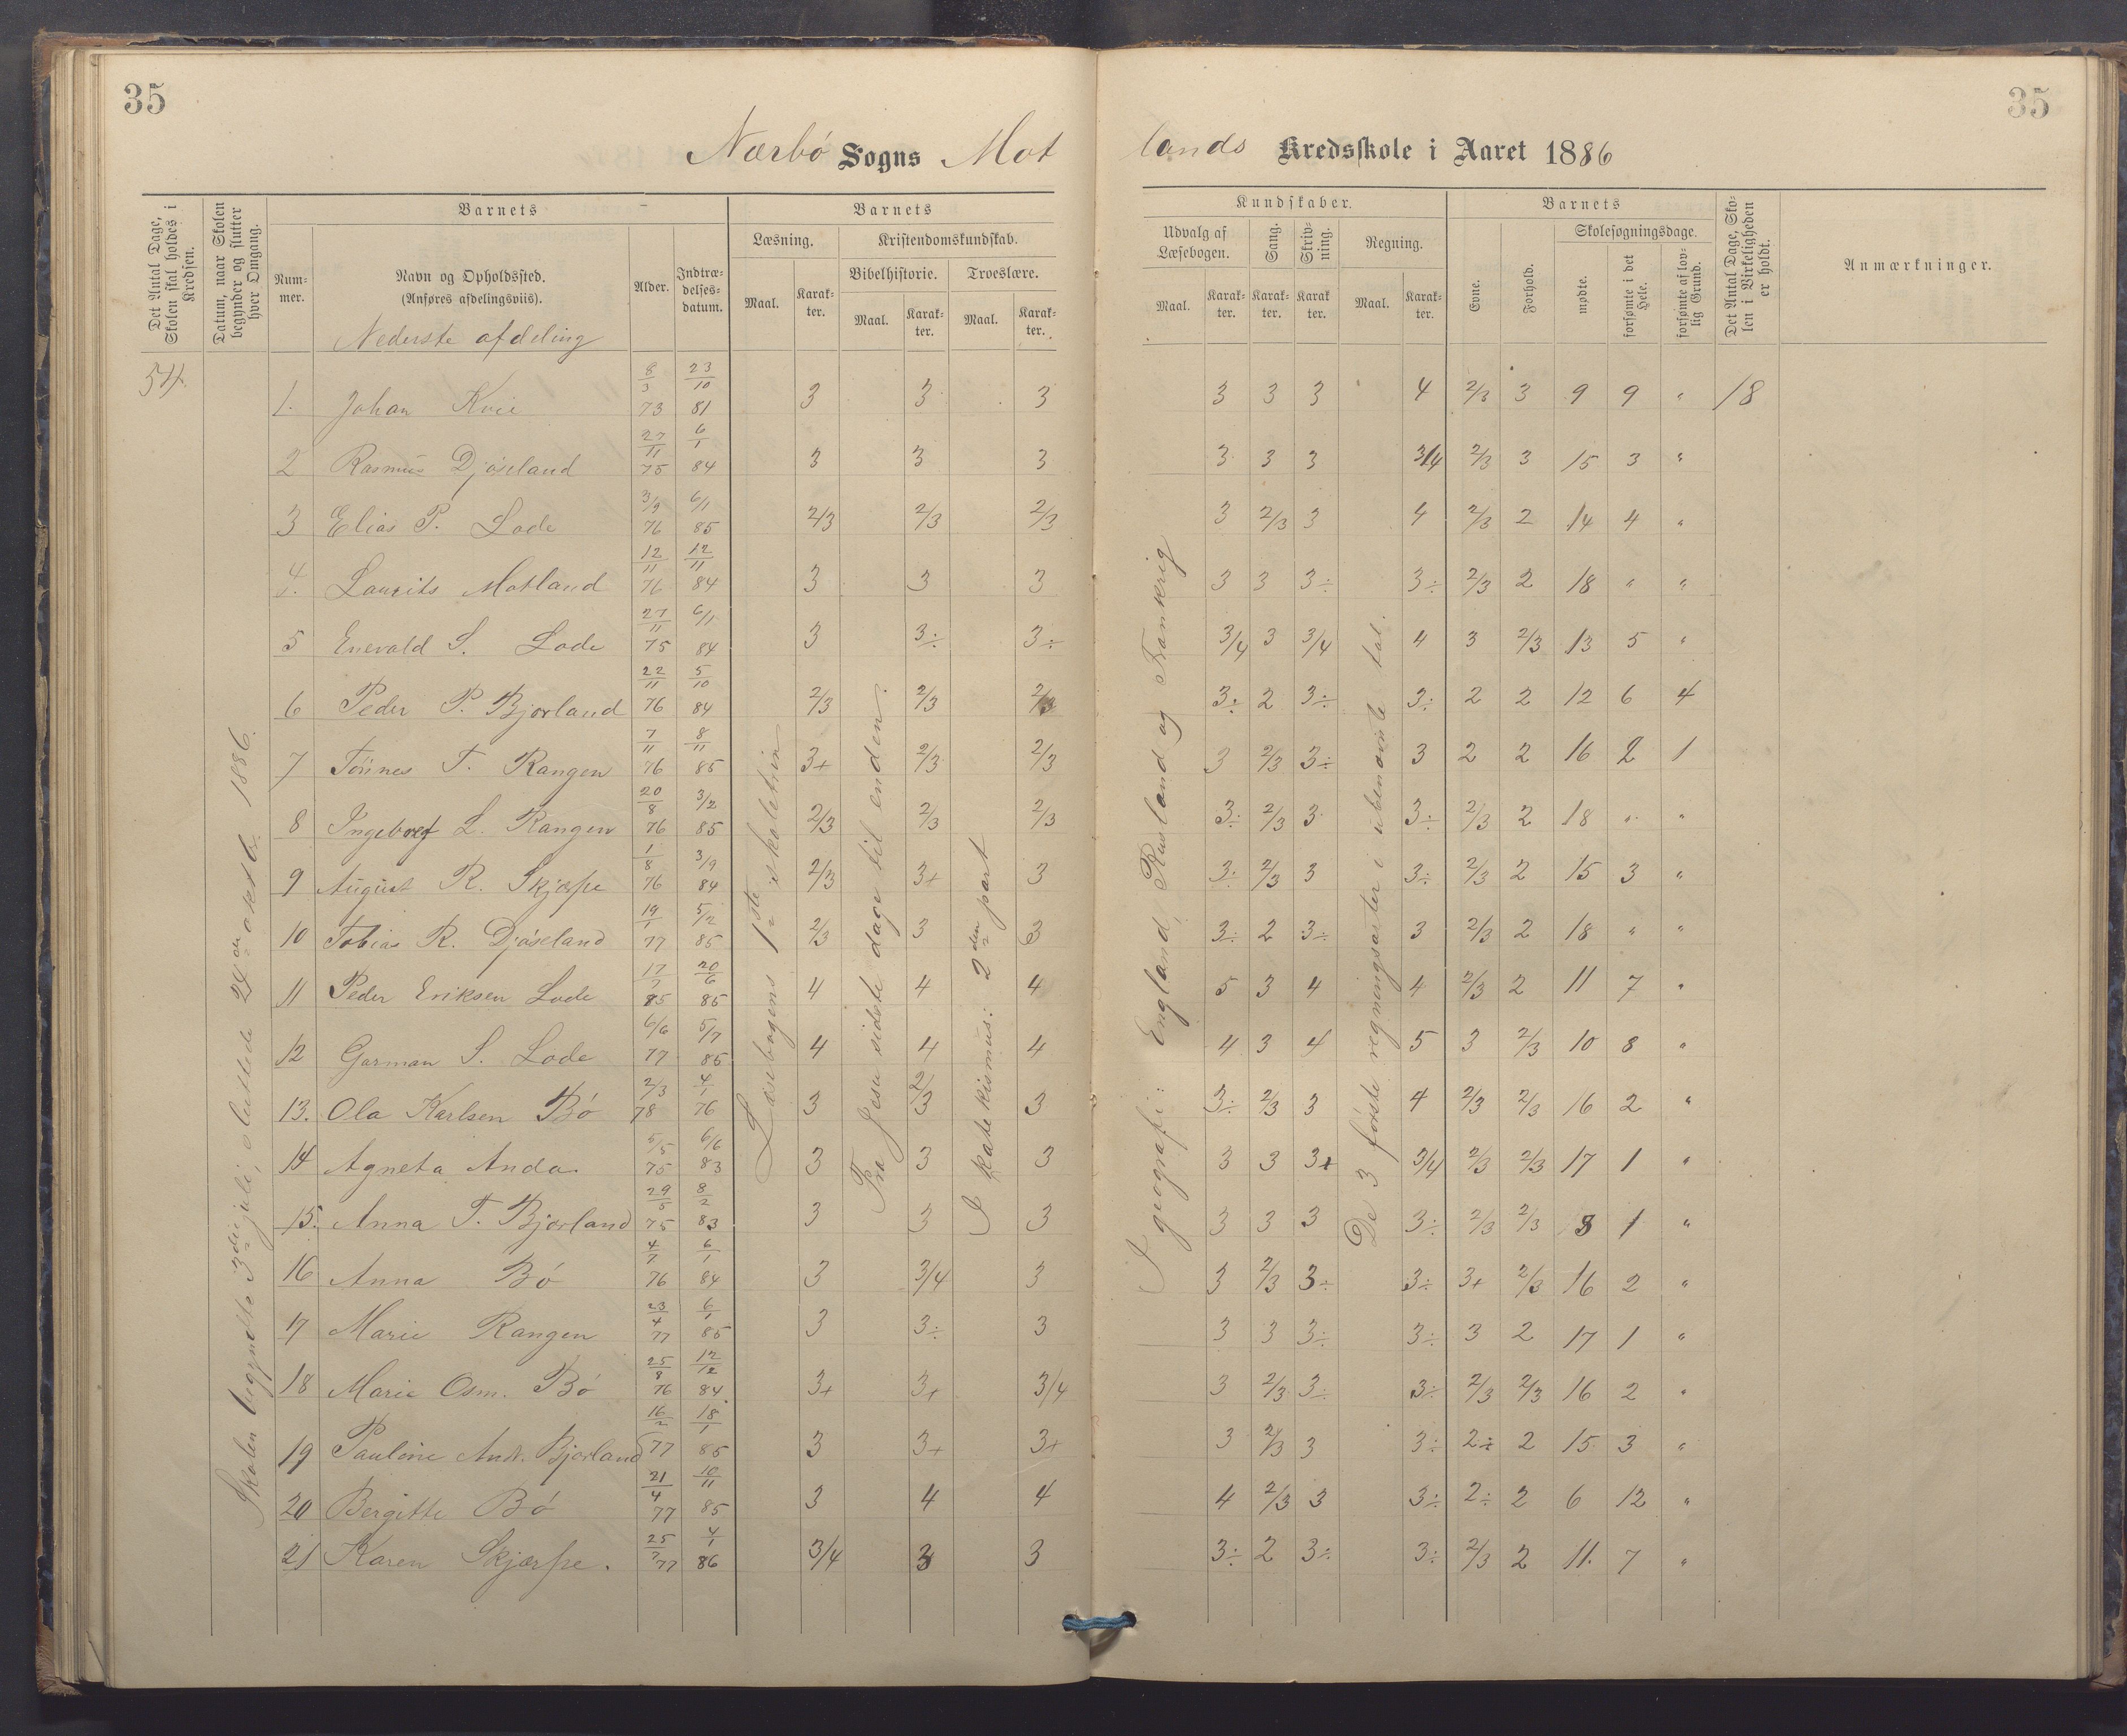 35
35
Nærbø Sogns Mot
lands Kredsskole i Aaret 1886
Det Antal Dage, Skolen skal holdes i Kredsen.
Datum, naar Skolen begynder og slutter hver Omgang.
Barnets
Num-
mer.
Navn og Opholdssted.
(Anføres afdelingsviis).
Nederste afdeling
Alder.
Indtræ-
delses-
datum.
Barnets
Læsning.
Kristendomskundskab.
Bibelhistorie.
Troeslære.
Maal.
Karak-
ter.
Maal.
Karak-
ter.
Maal.
Karak-
ter.
Kundskaber.
Udvalg af
Læsebogen.
Sang.
Skriv-
ning.
Regning.
Maal.
Karak-
ter.
Karak-
ter.
Karak
ter.
Maal.
Karak-
ter.
Barnets
Evne.
Forhold.
Skolesøgningsdage.
mødte.
forsømte i det Hele.
forsømte af lov-
lig Grund.
Det Antal Dage, Sko-
len i Virkeligheden
er holdt.
Anmærkninger.
54
Skolen begyndte 3die juli, sluttede 24de oktb. 1886.
Læsebogens 1ste skoletrin
Fra Jesu sidste dage til enden.
I katekismus: 2den part
I geografi: England, Rusland og Frankrig
De 3 første regningsarter i ubenævnte tal.
1. Johan Kvie 8/3 73 23/10 81 3 3 3 3 3 3 4 2/3 3 9 9 " 18
2 Rasmus Djøseland 27/11 75 6/1 84 3 3 3 3 3 3 3/4 2/3 3 15 3 "
3 Elias P. Lode 3/9 76 6/1 85 2/3 2/3 2/3 3 2/3 3 4 2/3 2 14 4 "
4. Laurits Motland 12/11 76 12/11 84 3 3 3 3 3 3÷ 3÷ 2/3 2 18 " "
5 Enevald S. Lode 27/11 75 6/1 84 3 3÷ 3÷ 3/4 3 3/4 4 3 2/3 13 5 "
6 Peder P. Bjorland 22/11 76 5/10 84 2/3 2/3 2/3 3÷ 2 3÷ 3÷ 2 2 12 6 4
7 Tønnes T. Rangen 7/11 76 8/11 85 3+ 2/3 2/3 3 2/3 3÷ 3 2 2 16 2 1
8 Ingeborg L. Rangen 20/8 76 3/2 85 2/3 2/3 2/3 3÷ 2/3 3 3÷ 2/3 2 18 " "
9 August R. Skjærpe 1/8 76 3/9 84 2/3 3+ 3 3÷ 2/3 3 3÷ 2/3 2 15 3 "
10 Tobias R. Djøseland 19/1 77 5/2 85 2/3 3 3 3÷ 2 3÷ 3 2/3 2 18 " "
11 Peder Eriksen Lode 17/7 85 20/6 85 4 4 4 5 3 4 4 2/3 2 11 7 "
12 Garman S. Lode 6/6 77 5/7 85 4 4 4 4 3 4 5 3 2/3 10 8 "
13. Ola Karlsen Bø 2/3 78 4/1 76 3 2/3 3 3÷ 2/3 3 4 2/3 2/3 16 2 "
14 Agneta Anda. 5/5 75 6/6 83 3 3 3 3 3 3+ 3/4 2/3 2/3 17 1 "
15. Anna T. Bjorland 29/5 75 8/2 83 3 3 3 3 3 3 3÷ 2/3 2/3 8 1 "
16 Anna Bø 4/7 76 6/1 84 3 3/4 3 3 2/3 3÷ 3÷ 3+ 2/3 16 2 "
17 Marie Rangen 23/4 77 6/1 85 3 3÷ 3 3 3 3÷ 3÷ 3 2 17 1 "
18 Marie Osm. Bø 25/8 76 12/12 84 3+ 3+ 3/4 3 2/3 3÷ 3÷ 2/3 2/3 16 2 "
19 Pauline Andr. Bjorland 16/2 77 18/1 85 3 3+ 3+ 3 2/3 3 3÷ 2÷ 2 15 3 "
20 Bergitte Bø 21/4 77 10/11 85 3 4 4 4 2/3 3 3÷ 2÷ 2 6 12 "
21 Karen Skjærpe. 25/7 77 4/1 86 3/4 3 3 3÷ 2 3÷ 3÷ 2/3 2 11. 7 "